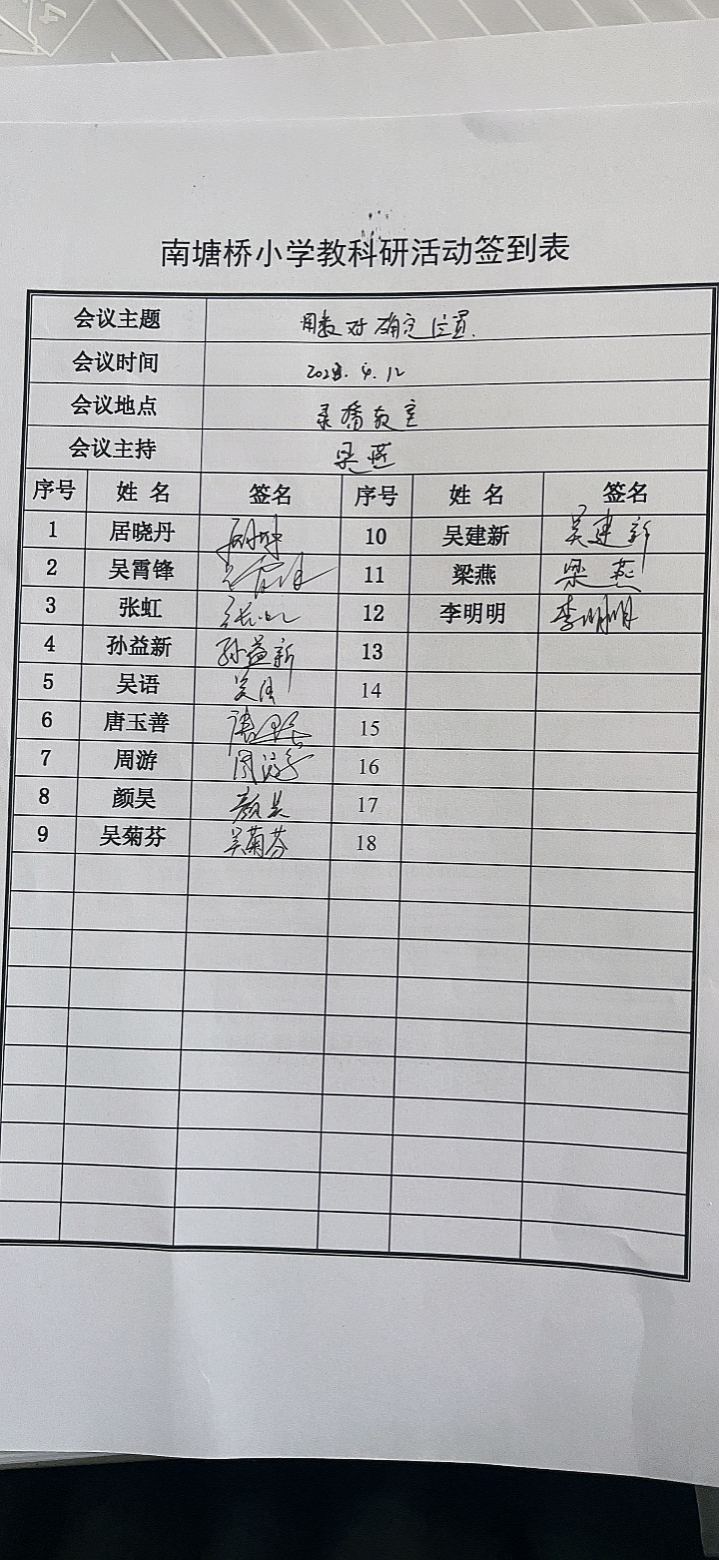 南塘桥小学教科研活动签到表
会议主题 用数对确定位置.
会议时间 2023.4.12
会议地点 录播教室
会议主持 梁燕
序号 姓 名 签名 序号 姓 名 签名
1 居晓丹 10 吴建新 吴建新
2 吴霄锋 吴霄锋 11 梁燕 梁燕
3 张虹 张虹 12 李明明 李明明
4 孙益新 孙益新 13
5 吴语 吴语 14
6 唐玉善 15
7 周游 周游 16
8 颜昊 颜昊 17
9 吴菊芬 吴菊芬 18